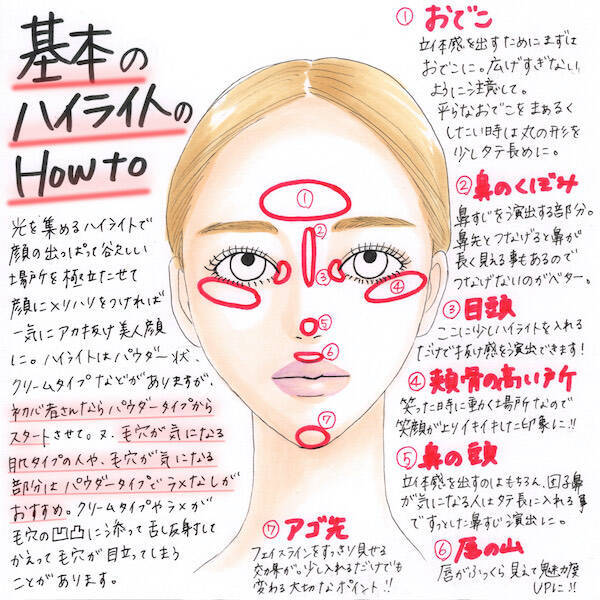 基本の
ハイライトの
How to
光を集めるハイライトで
顔の出っぱって欲しい
場所を極立たせて
顔にメリハリをつければ
一気にアカ抜け美人顔
に。ハイライトはパウダー状、
クリームタイプなどがありますが、
初心者さんならパウダータイプから
スタートさせて。又、毛穴が気になる
肌タイプの人や、毛穴が気になる
部分はパウダータイプでラメなしが
おすすめ。クリームタイプやラメが
毛穴の凹凸に添って乱反射して
かえって毛穴が目立ってしまう
ことがあります。
① おでこ
立体感を出すためにまずは
おでこに。広げすぎない
ように注意して。
平らなおでこをまあるく
したい時は丸の形を
少しタテ長めに。
② 鼻のくぼみ
鼻すじを演出する部分。
鼻先とつなげると鼻が
長く見える事もあるので
つなげないのがベター。
③ 目頭
ここに少しハイライトを入れる
だけで抜け感を演出できます!
④ 頬骨の高い所
笑った時に動く場所なので
笑顔がよりイキイキした印象に!!
⑤ 鼻の頭
立体感を出すのはもちろん、団子鼻
が気になる人はタテ長に入れる事
ですっとした鼻すじ演出に。
⑥ 唇の山
唇がふっくら見えて魅力度
UPに!!
⑦ アゴ先
フェイスラインをすっきり見せる
効果が。少し入れるだけでも
変わる大切なポイント!!
①
②
③
④
⑤
⑥
⑦